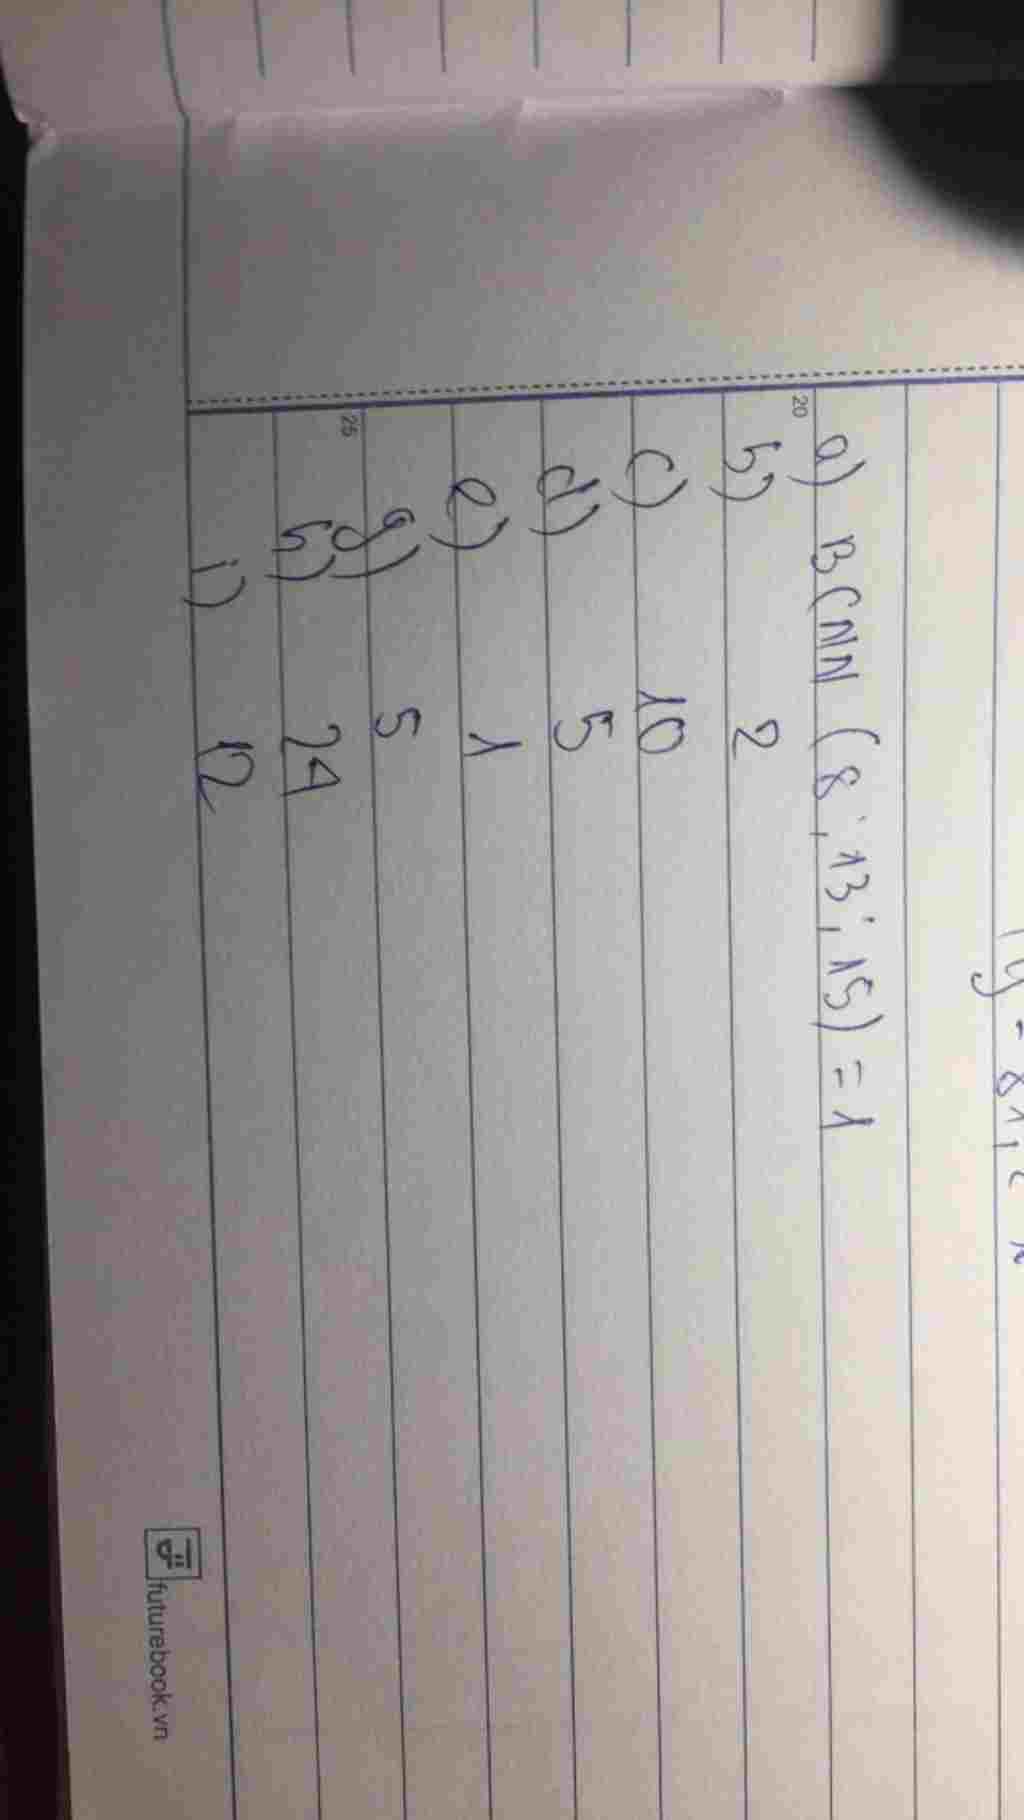 20 a) BCNN (8; 13; 15) = 1
b) 2
c) 10
d) 5
e) 1
25 g) 5
h) 24
i) 12
futurebook.vn